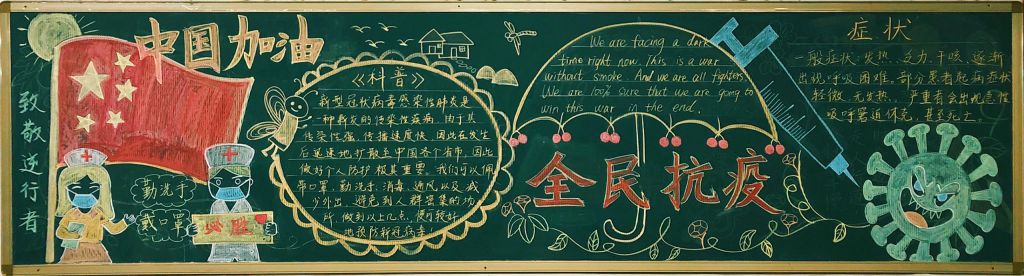 致敬逆行者
中国加油
勤洗手
戴口罩
必胜
《科普》
新型冠状病毒感染性肺炎是
一种新发的传染性疾病,由于其
传染性强,传播速度快,因此在发生
后迅速地扩散至中国各个省市,因此
做好个人防护极其重要。我们可以佩
带口罩、勤洗手、消毒、通风以及减
少外出、避免到人群密集的场
所,做到以上几点,便可较好
地预防新冠病毒!
We are facing a dark
time right now. This is a war
without smoke. And we are all fighters.
We are 100% sure that we are going to
win this war in the end.
全民抗疫
症状
一般症状:发热、乏力、干咳、逐渐
出现呼吸困难,部分患者起病症状
轻微,无发热,严重者会出现急性
呼吸窘迫休克,甚至死亡。